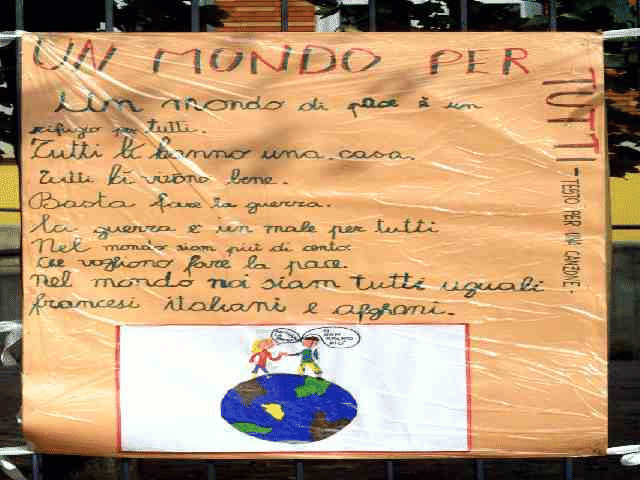 UN MONDO PER TUTTI
- TESTO PER UNA CANZONE -
Un mondo di pace è un
rifugio per tutti.
Tutti lì hanno una casa.
Tutti lì vivono bene.
Basta fare la guerra.
la guerra è un male per tutti
Nel mondo siam più di cento:
che vogliono fare la pace.
nel mondo noi siam tutti uguali
francesi italiani e afghani.